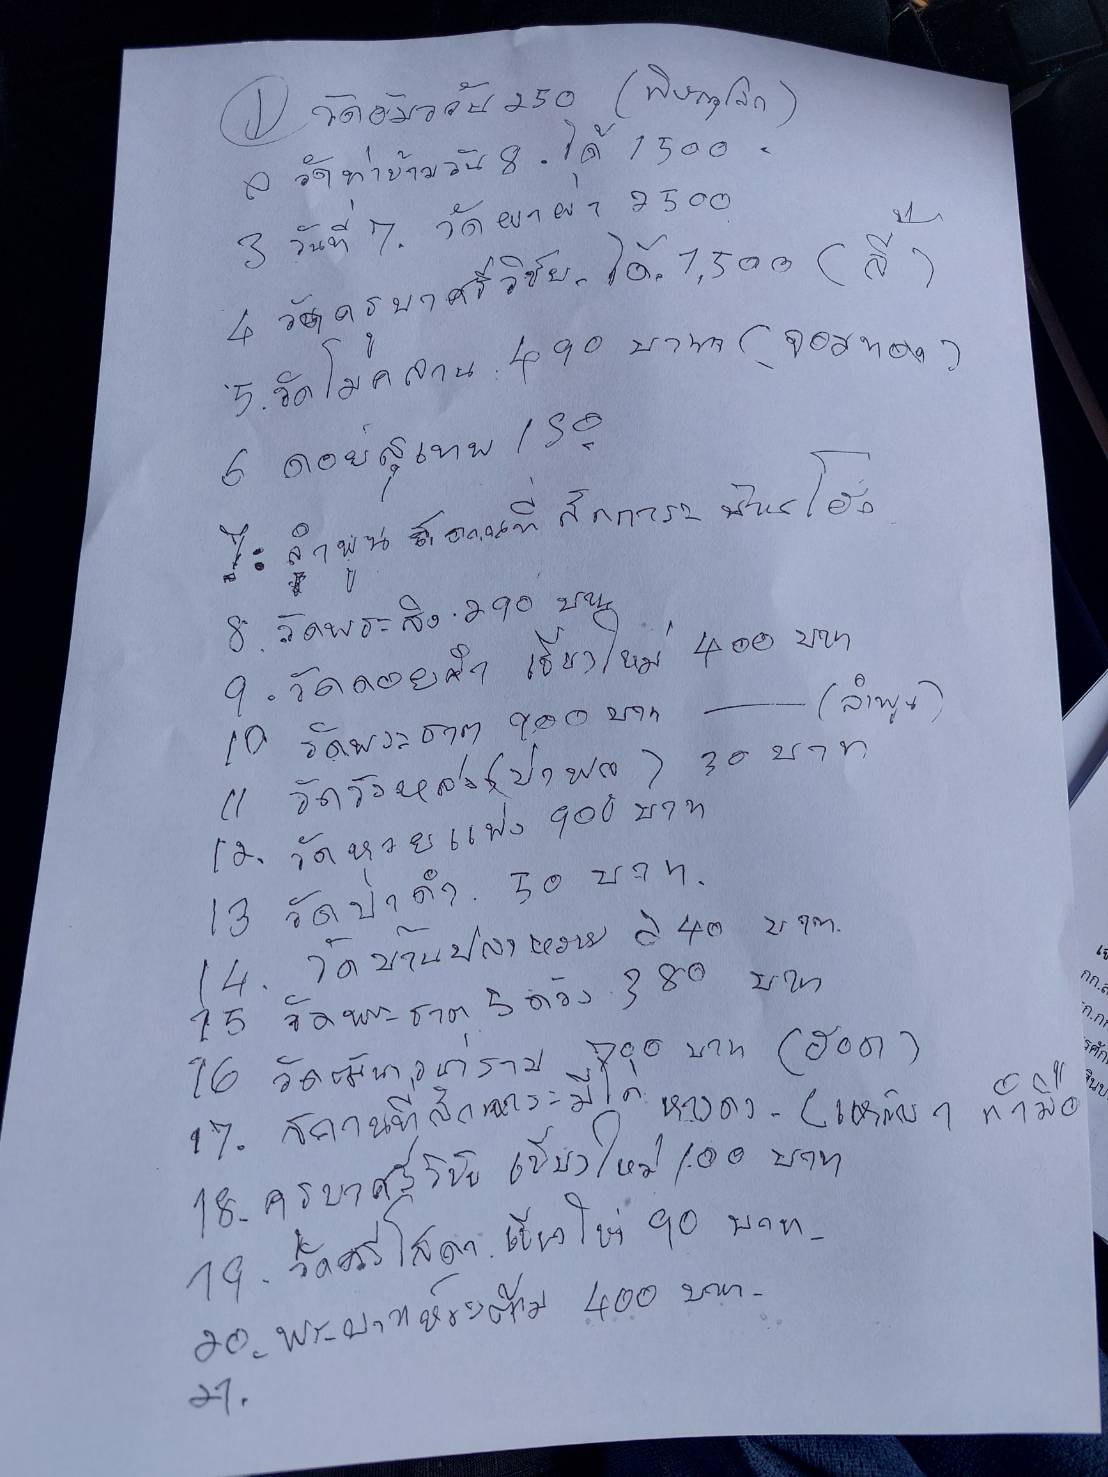 1 วัดอัมววัน 250 (พิษณุโลก)
2 วัดท่าข้ามวัน 8. ได้ 1500 -
3 วันที่ 7. วัดผาผ่า 2500
4 วัดครูบาศรีวิชัย. ได้. 1,500 (ลี้)
5. วัดโมคลาน. 490 บาท (จอมทอง)
6 ดอยสุเทพ 150
7: ลำพูน สถานที่ สักการะ
8. วัดพระสิง. 290 บาท
9. วัดดอยคำ เชียงใหม่ 400 บาท
10 วัดพระธาตุ 900 บาท —— (ลำพูน)
11 วัดวังหลง (ป่าพล) 30 บาท
12. วัดหวยแพ่ง 900 บาท
13 วัดป่าดำ. 50 บาท.
14. วัดบ้านปลาหวาย 240 บาท.
15 วัดพระธาตุ 5 ดวง. 380 บาท
16 700 บาท (ฮอด)
17. สถานที่สักการะ หางดง - (
18. ครบาศรีวิชัย เชียงใหม่ 100 บาท
19. วัดศรีโสดา. เชียงใหม่ 90 บาท -
20. พระบาทห้วยต้ม 400 บาท -
21.